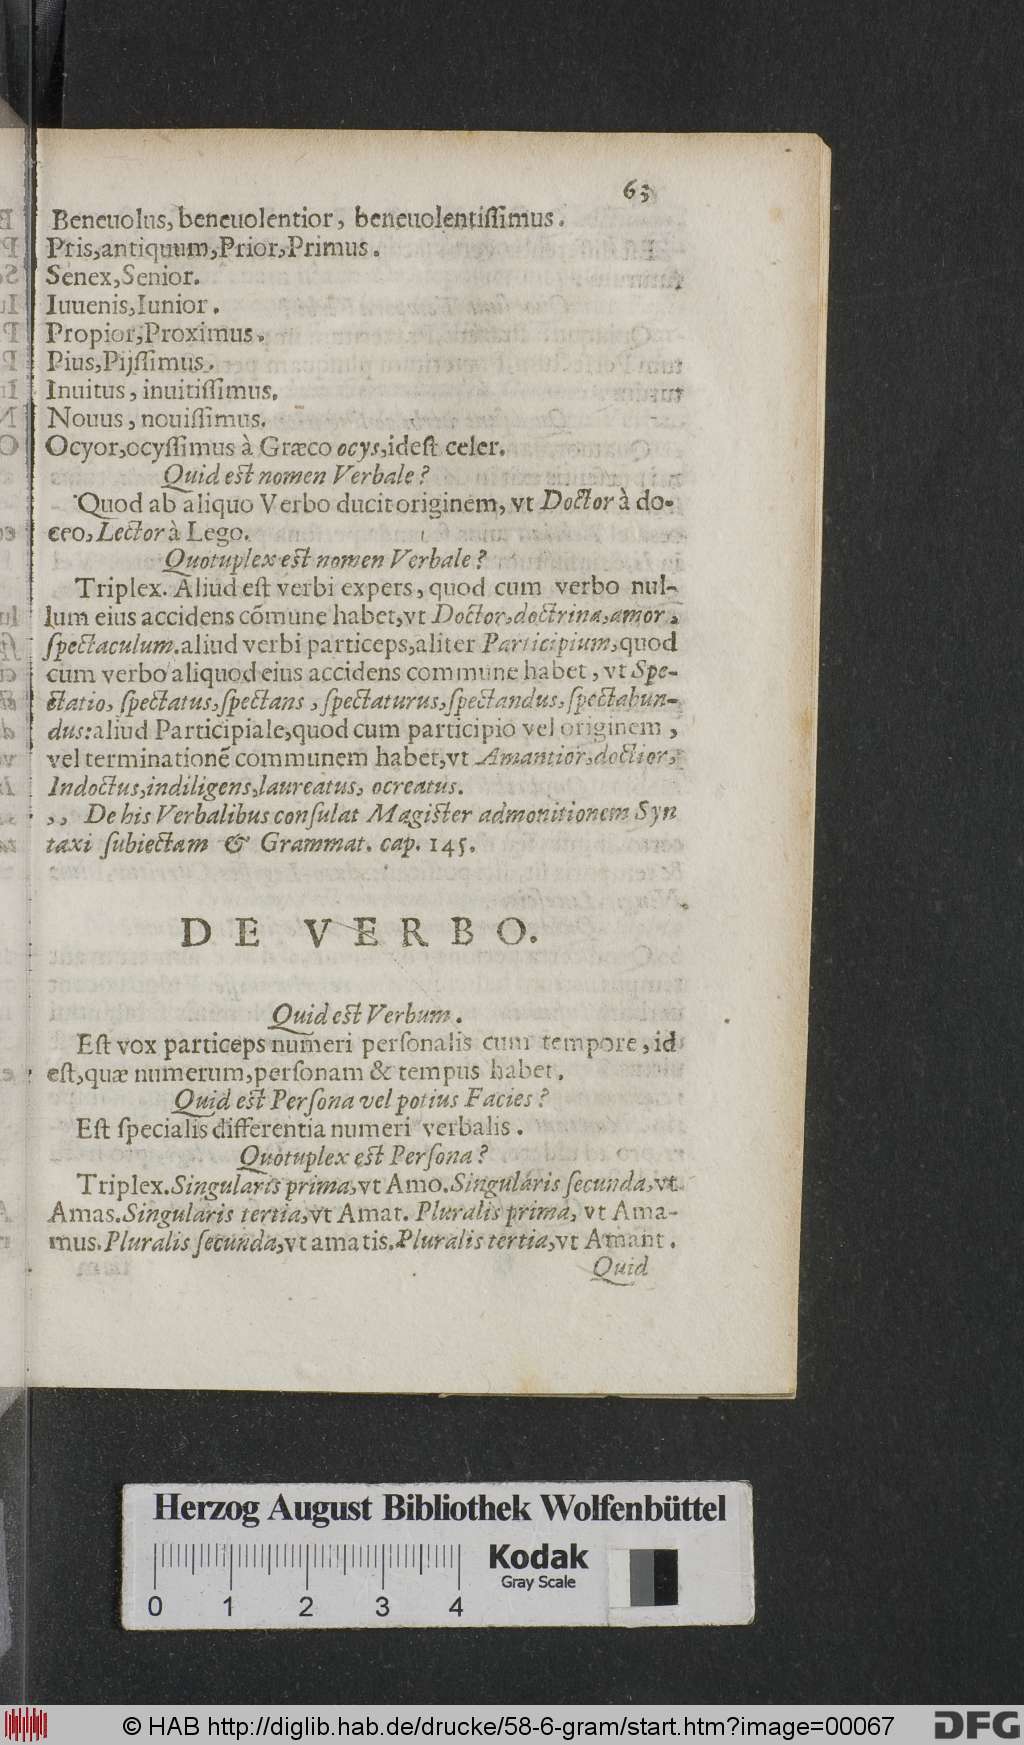 63
Beneuolus, beneuolentior, beneuolentiſſimus.
Pris,antiquum,Prior,Primus.
Senex,Senior.
Iuuenis,Iunior.
Propior,Proximus.
Pius,Pijſſimus.
Inuitus, inuitiſſimus.
Nouus, nouiſſimus.
Ocyor,ocyſſimus à Græco ocys,ideſt celer.
Quid eſt nomen Verbale?
Quod ab aliquo Verbo ducit originem, vt Doctor à do-
ceo,Lector à Lego.
Quotuplex eſt nomen Verbale?
Triplex. Aliud eſt verbi expers, quod cum verbo nul-
lum eius accidens cõmune habet,vt Doctor,doctrina,amor,
ſpectaculum.aliud verbi particeps,aliter Participium,quod
cum verbo aliquod eius accidens commune habet, vt Spe-
ctatio, ſpectatus,ſpectans, ſpectaturus,ſpectandus,ſpectabun-
dus:aliud Participiale,quod cum participio vel originem,
vel terminationẽ communem habet,vt Amantior,doctior,
Indoctus,indiligens,laureatus, ocreatus.
,, De his Verbalibus conſulat Magiſter admonitionem Syn
taxi ſubiectam & Grammat. cap. 145.
DE VERBO.
Quid eſt Verbum.
Eſt vox particeps numeri perſonalis cum tempore, id
eſt,quæ numerum,perſonam & tempus habet.
Quid eſt Perſona vel potius Facies?
Eſt ſpecialis differentia numeri verbalis.
Quotuplex eſt Perſona?
Triplex.Singularis prima,vt Amo.Singularis ſecunda,vt
Amas.Singularis tertia,vt Amat. Pluralis prima, vt Ama-
mus.Pluralis ſecunda,vt amatis.Pluralis tertia,vt Amant.
Quid
Herzog August Bibliothek Wolfenbüttel
Kodak
Gray Scale
0 1 2 3 4
© HAB http://diglib.hab.de/drucke/58-6-gram/start.htm?image=00067
DFG